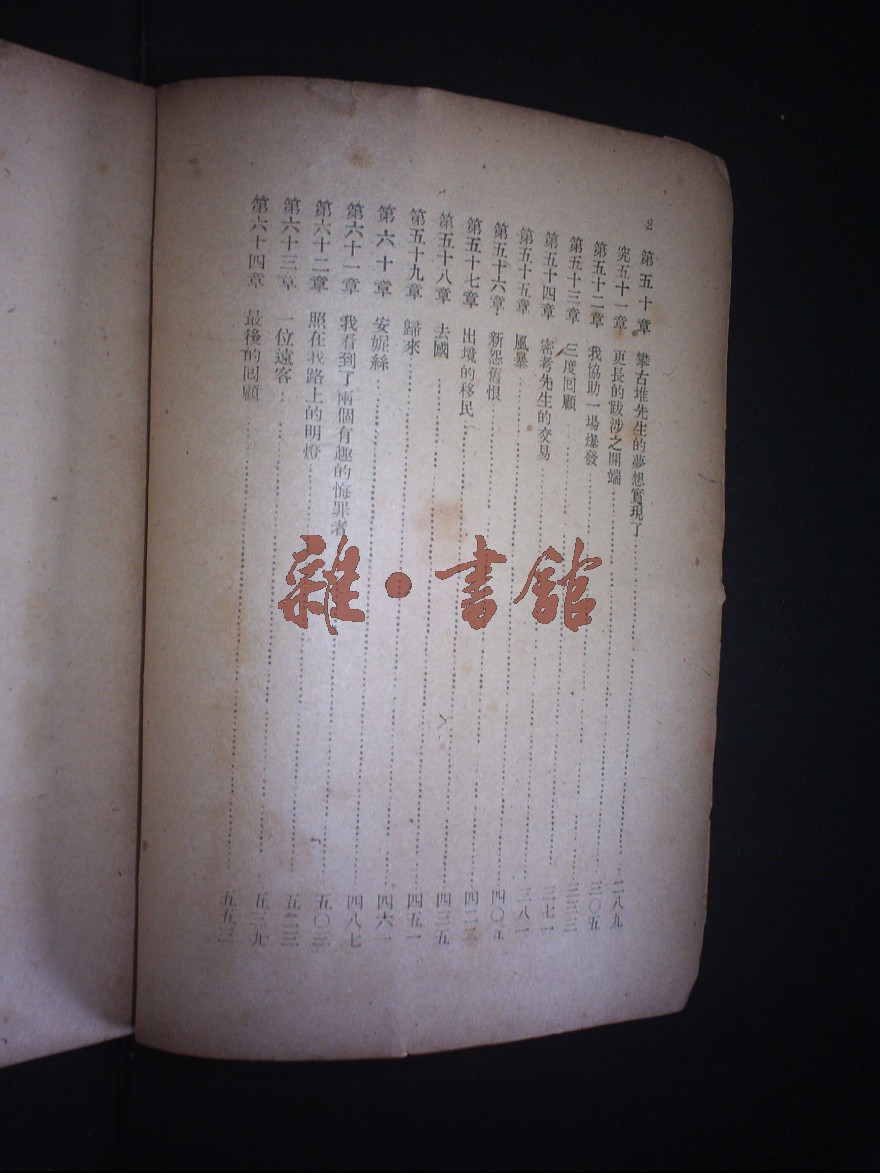 2
第五十章 攀古堆先生的夢想實現了 二八九
究五十一章 更長的跋涉之開端 三〇五
第五十二章 我協助一場爆發
第五十三章 三度回顧 三七一
第五十四章 密考先生的交易 三八一
第五十五章 風暴 四〇五
第五十六章 新怨舊恨
第五十七章 出境的移民 四三五
第五十八章 去國 四五一
第五十九章 歸來 四六一
第六十章 安妮絲 四八七
第六十一章 我看到了兩個有趣的悔罪者 五〇三
第六十二章 照在我路上的明燈 五二三
第六十三章 一位遠客 五三九
第六十四章 最後的回顧 五五三
雜·書館